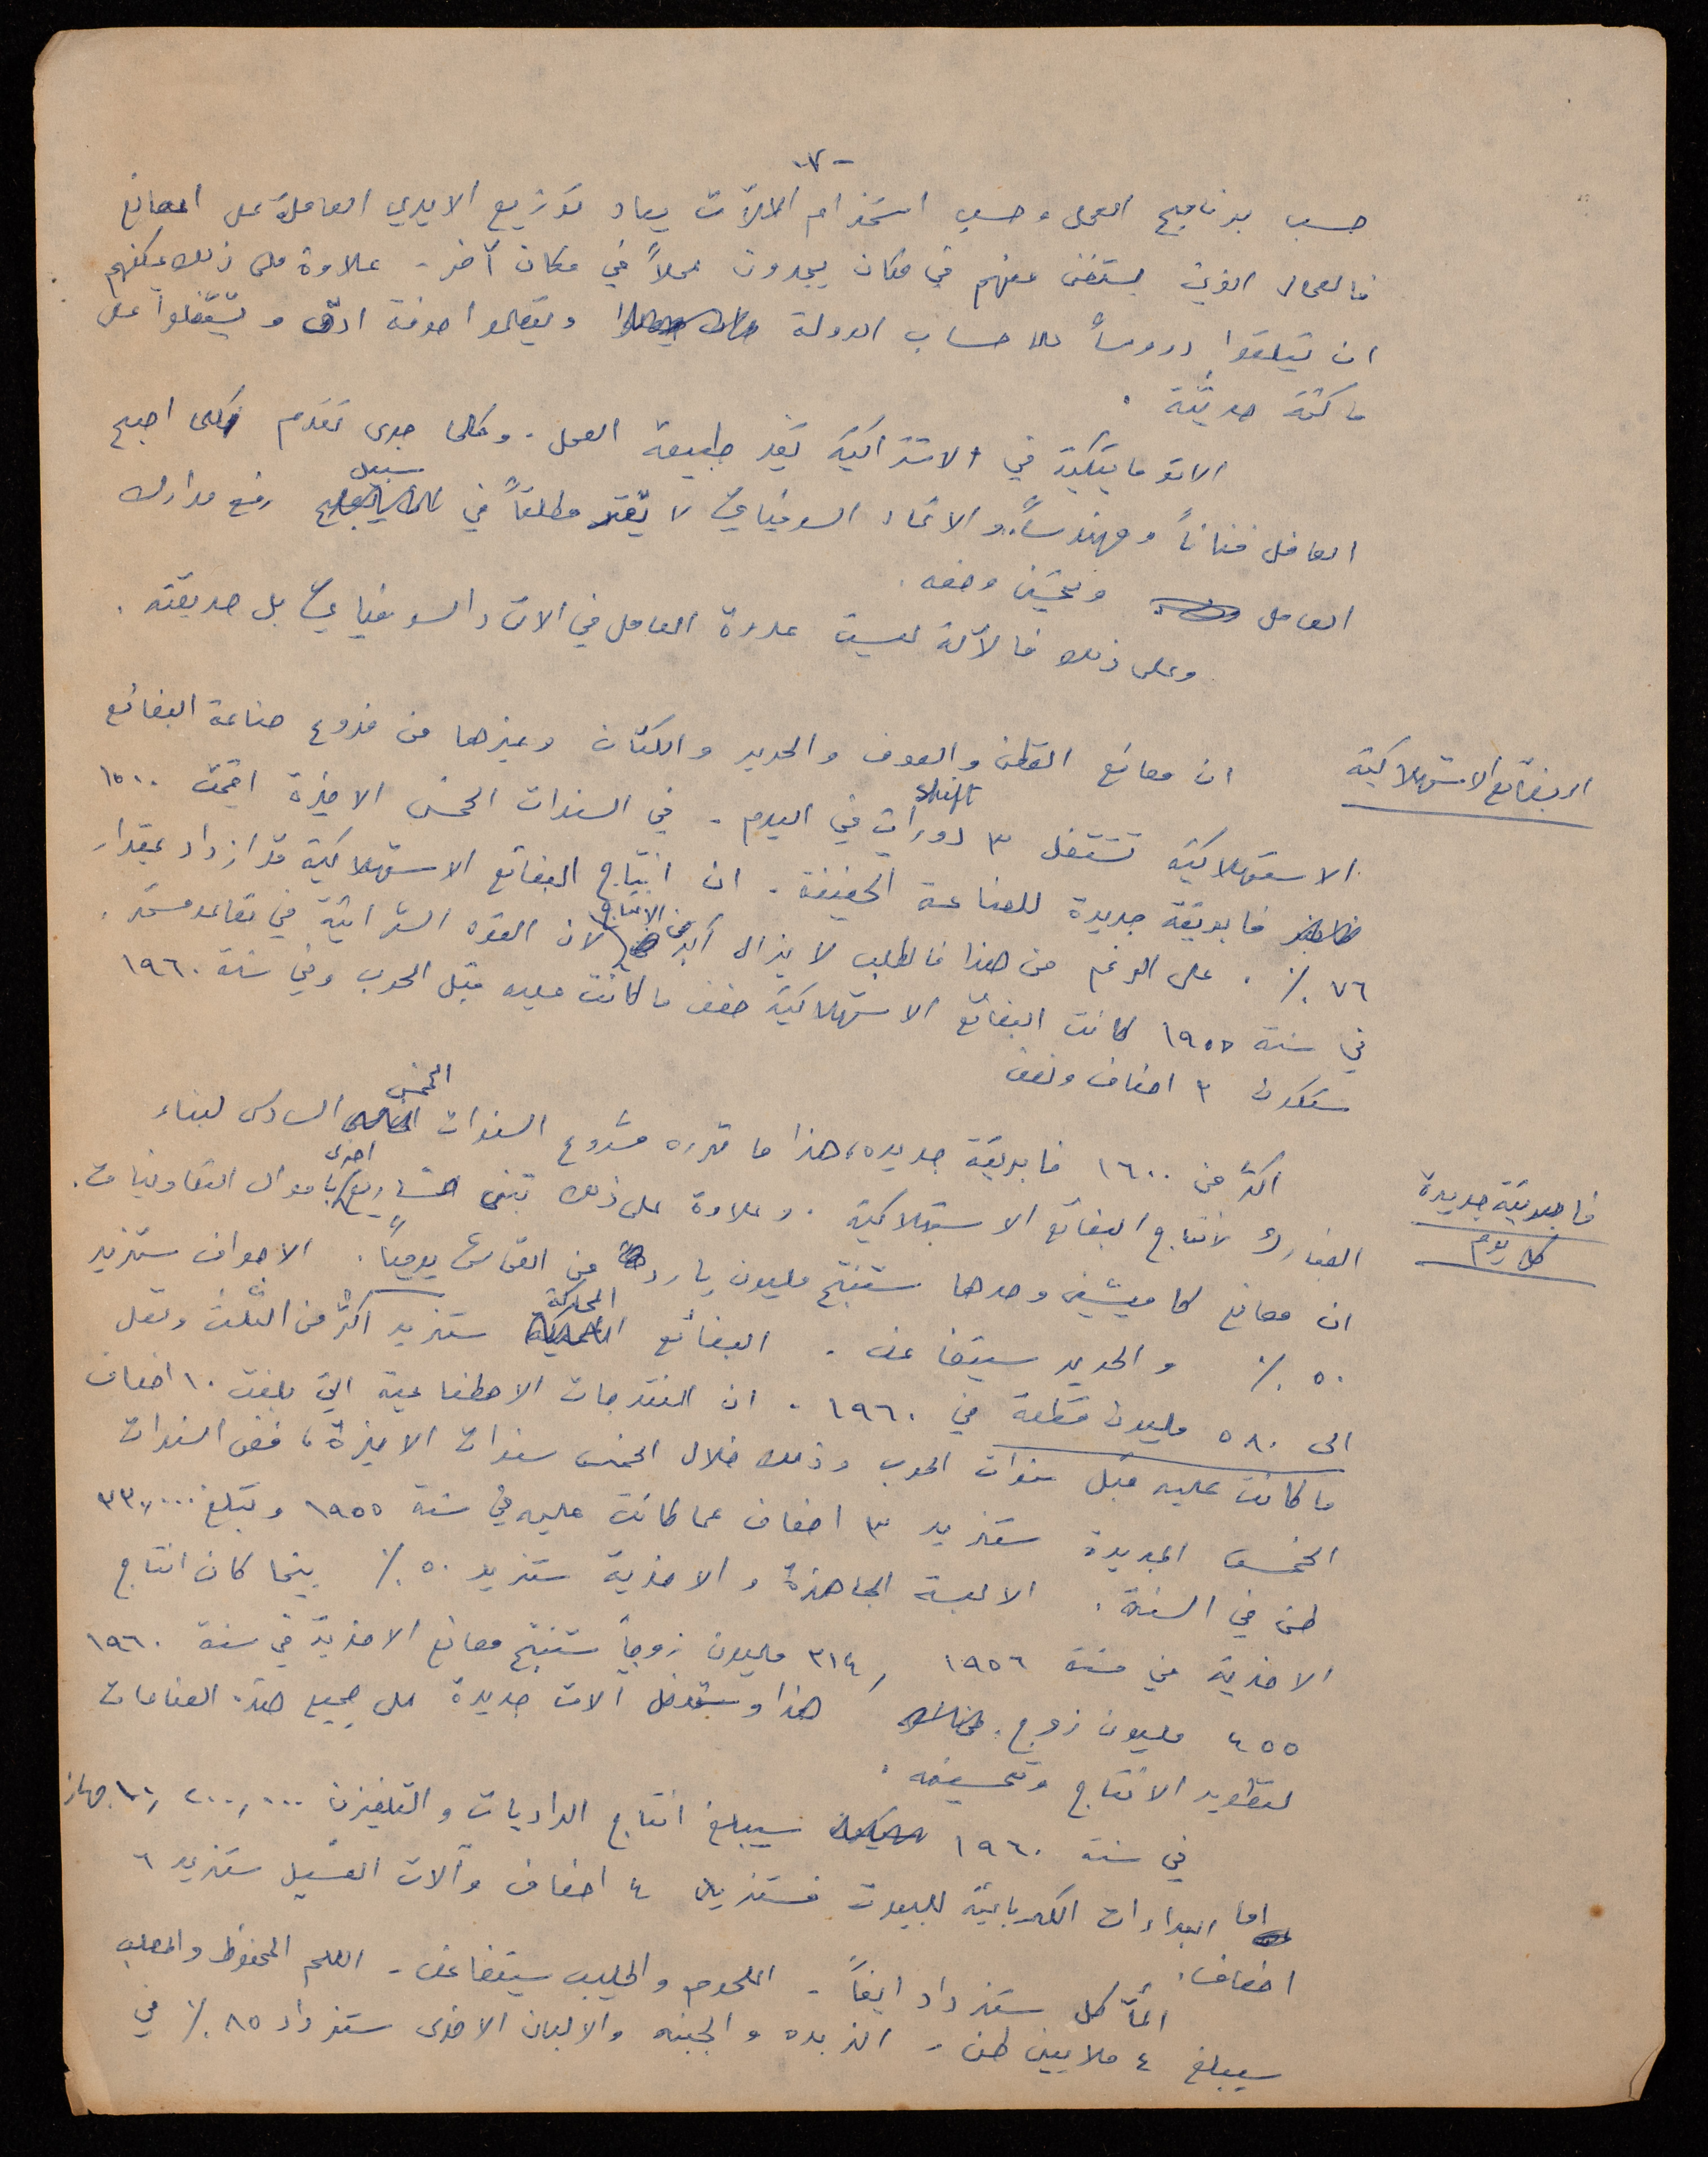 -٧-
حسب برنامج العمل وحسب استخدام الالات يعاد توزيع الايدي العاملة على المصانع
فالعمال الذين يستغنى عنهم في مكان يجدون عملاً في مكان آخر . علاوة على ذلك يمكنهم
ان يتلقوا دروساً على حساب الدولة ويتعلموا حرفة ادق ويشتغلوا على
ماكنة حديثة .
الاتوماتيكية في الاشتراكية تغير طبيعة العمل . وكلما جرى تقدم كلما اصبح
العامل فناناً ومهندساً. والاتحاد السوفياتي لا يقتر مطلقاً في سبيل رفع مدارك
العامل وتحسين وضعه .
وعلى ذلك فالآلة ليست عدوة العامل في الاتحاد السوفياتي بل صديقته .
البضائع الاستهلاكية
ان مصانع القطن والصوف والحرير والكتان وغيرها من فروع صناعة البضائع
الاستهلاكية تشتغل ٣ دورات shift في اليوم . في السنوات الخمس الاخيرة اقيمت ١٥٠٠
فابريقة جديدة للصناعة الخفيفة . ان انتاج البضائع الاستهلاكية قد ازداد بمقدار
٧٦ ٪ . على الرغم من هذا فالطلب لا يزال اكبر من الانتاج لان القوه الشرائية في تصاعد مستمر .
في سنة ١٩٥٥ كانت البضائع الاستهلاكية ضعف ما كانت عليه قبل الحرب وفي سنة ١٩٦٠
ستكون ٣ اضعاف ونصف
فابريقة جديدة
كل يوم
اكثر من ١٦٠٠ فابريقة جديده، هذا ما قرره مشروع السنوات الخمس السادس لبناء
الفبارك لانتاج البضائع الاستهلاكية . وعلاوة على ذلك تبنى مشاريع اخرى باموال التعاونيات .
ان مصانع كاميشين وحدها ستنتج مليون يارد من القماش يومياً . الاصواف ستزيد
٥٠ ٪ والحرير سيتضاعف . البضائع المحاكة ستزيد اكثر من الثلث وتصل
الى ٥٨٠ مليون قطعة في ١٩٦٠ . ان المنتوجات الاصطناعية التي بلغت ١٠ اضعاف
ما كانت عليه قبل سنوات الحرب وذلك خلال الخمس سنوات الاخيرة ، ففي السنوات
الخمس الجديدة ستزيد ٣ اضعاف عما كانت عليه في سنة ١٩٥٥ وتبلغ ٣٣٠,٠٠٠
طن في السنة . الالبسة الجاهزة والاحذية ستزيد ٥٠ ٪ بينما كان انتاج
الاحذية في سنة ١٩٥٦ , ٣١٤ مليون زوجاً ستنتج مصانع الاحذية في سنة ١٩٦٠
٤٥٥ مليون زوج . هذا وستدخل الات جديدة على جميع هذه الصناعات
لتطوير الانتاج وتحسينه .
في سنة ١٩٦٠ سيبلغ انتاج الراديات والتلفيزن ١٠,٢٠٠,٠٠٠ جهاز
اما البرادات الكهربائية للبيوت فستزيد ٤ اضعاف وآلات الغسيل ستزيد ٦
اضعاف .
المآكل ستزداد ايضاً . اللحوم والحليب سيتضاعف . اللحم المحفوظ والمعلب
سيبلغ ٤ ملايين طن . الزبده والجبنه والالبان الاخرى ستزداد ٨٥ ٪ في